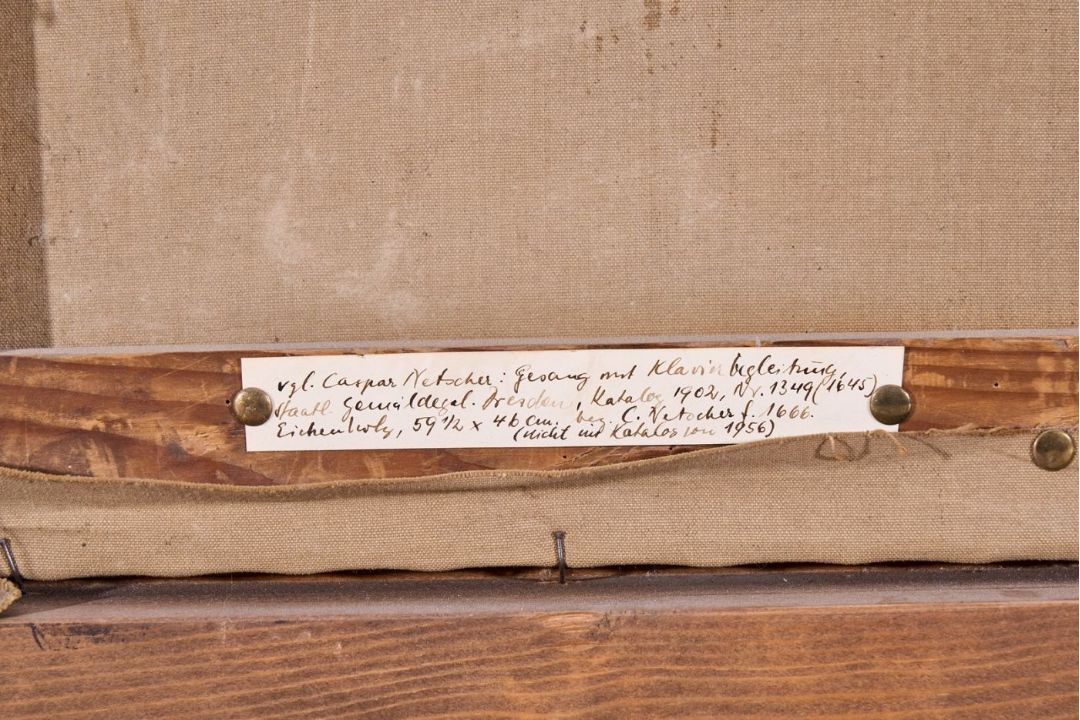 vgl. Caspar Netscher: Gesang mit Klavierbegleitung,
Staatl. Gemäldegal. Dresden, Katalog 1902, Nr. 1349 (1645)
Eichenholz, 59 1/2 x 46 cm. bez. C. Netscher f. 1666.
(nicht mit Katalog von 1956)